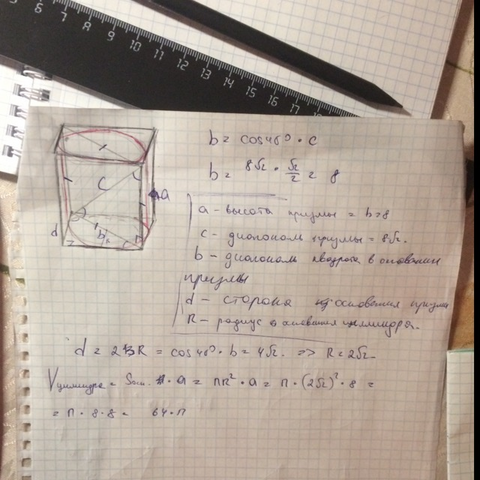 5 6 7 8 9 10 11 12 13 14 15 16 17 18
b = cos45° · c
b = 8√2 · √2/2 = 8
a - высота призмы = b = 8
c - диагональ призмы = 8√2.
b - диагональ квадрата в основании
призмы
d - сторона основания призмы
R - радиус основания цилиндра.
c
a
d
b
R
d = 2R = cos45° · b = 4√2. => R = 2√2
V цилиндра = Sосн. · a = πR² · a = π · (2√2)² · 8 =
= π · 8 · 8 = 64 · π